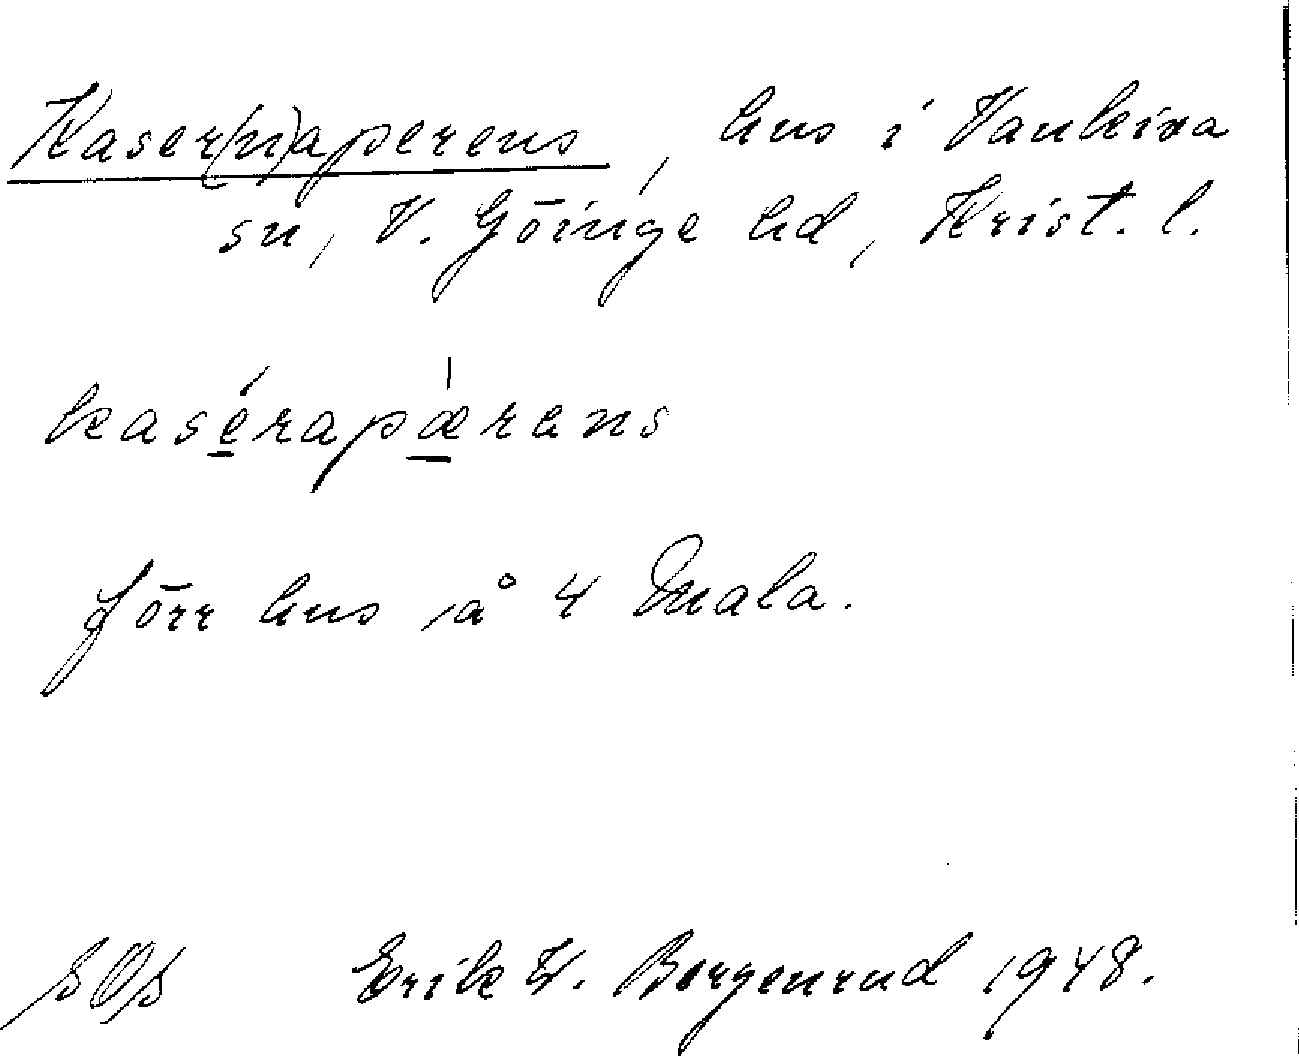 Kaser(n)aperens, hus i Vankiva
sn, V. Göinge hd, Krist. l.
kasérapærans
förr hus å 4 Mala.
sOs Erik W. Borgenrud 1948.